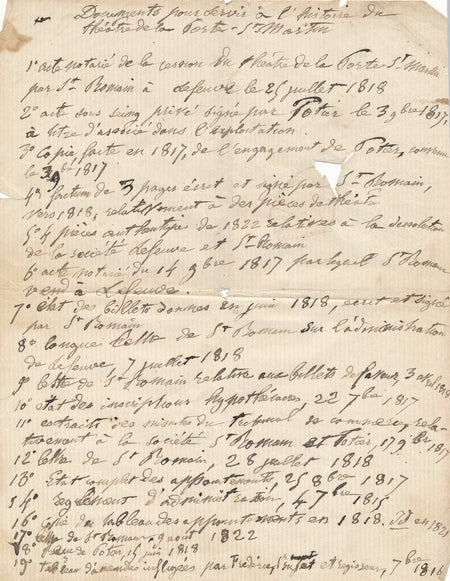 Documents pour servir à l'histoire du
théâtre de la Porte-St Martin
1° acte notarié de la cession du théâtre de la Porte-St Martin
par St-Romain à Lefeuve le 25 juillet 1818
2° acte sous seing privé signé par Potier le 3 9bre 1817,
à titre d'associé dans l'exploitation.
3° copie faite en 1817, de l'engagement de Potier,
le 1817
4° factum de 3 pages écrit et signé par St-Romain,
vers 1818, relativement à des pièces de théâtre
5° 4 pièces authentiques de 1822 relatives à la dissolution
de la société Lefeuve et St-Romain
6° acte notarié du 14 9bre 1817 par lequel St Romain
vend à Lefeuve.
7° état des billets donnés en juin 1818, écrit et signé
par St Romain
8° longue lettre de St Romain sur l'administration
de Lefeuve, 7 juillet 1818
9° lettre de St Romain relative aux billets de faveur, 3 1818
10° état des inscriptions hypothécaires, 22 7bre 1817
11° extraits des minutes du tribunal de commerce, rela-
tivement à la société St Romain et Potier, 17 9bre 1817
12° lettre de St Romain, 28 juillet 1818
13° Etat complet des appointements, 25 8bre 1817
14° règlement d'administration, 4 7bre 1815
16° du tableau des appointements en 1818. Id en 1821
17° lettre de St Romain, 9 aout 1822
18° de Potier, 15 juin 1818
19° tableau d'amendes infligées par Frédéric et régisseur, 7bre 1816